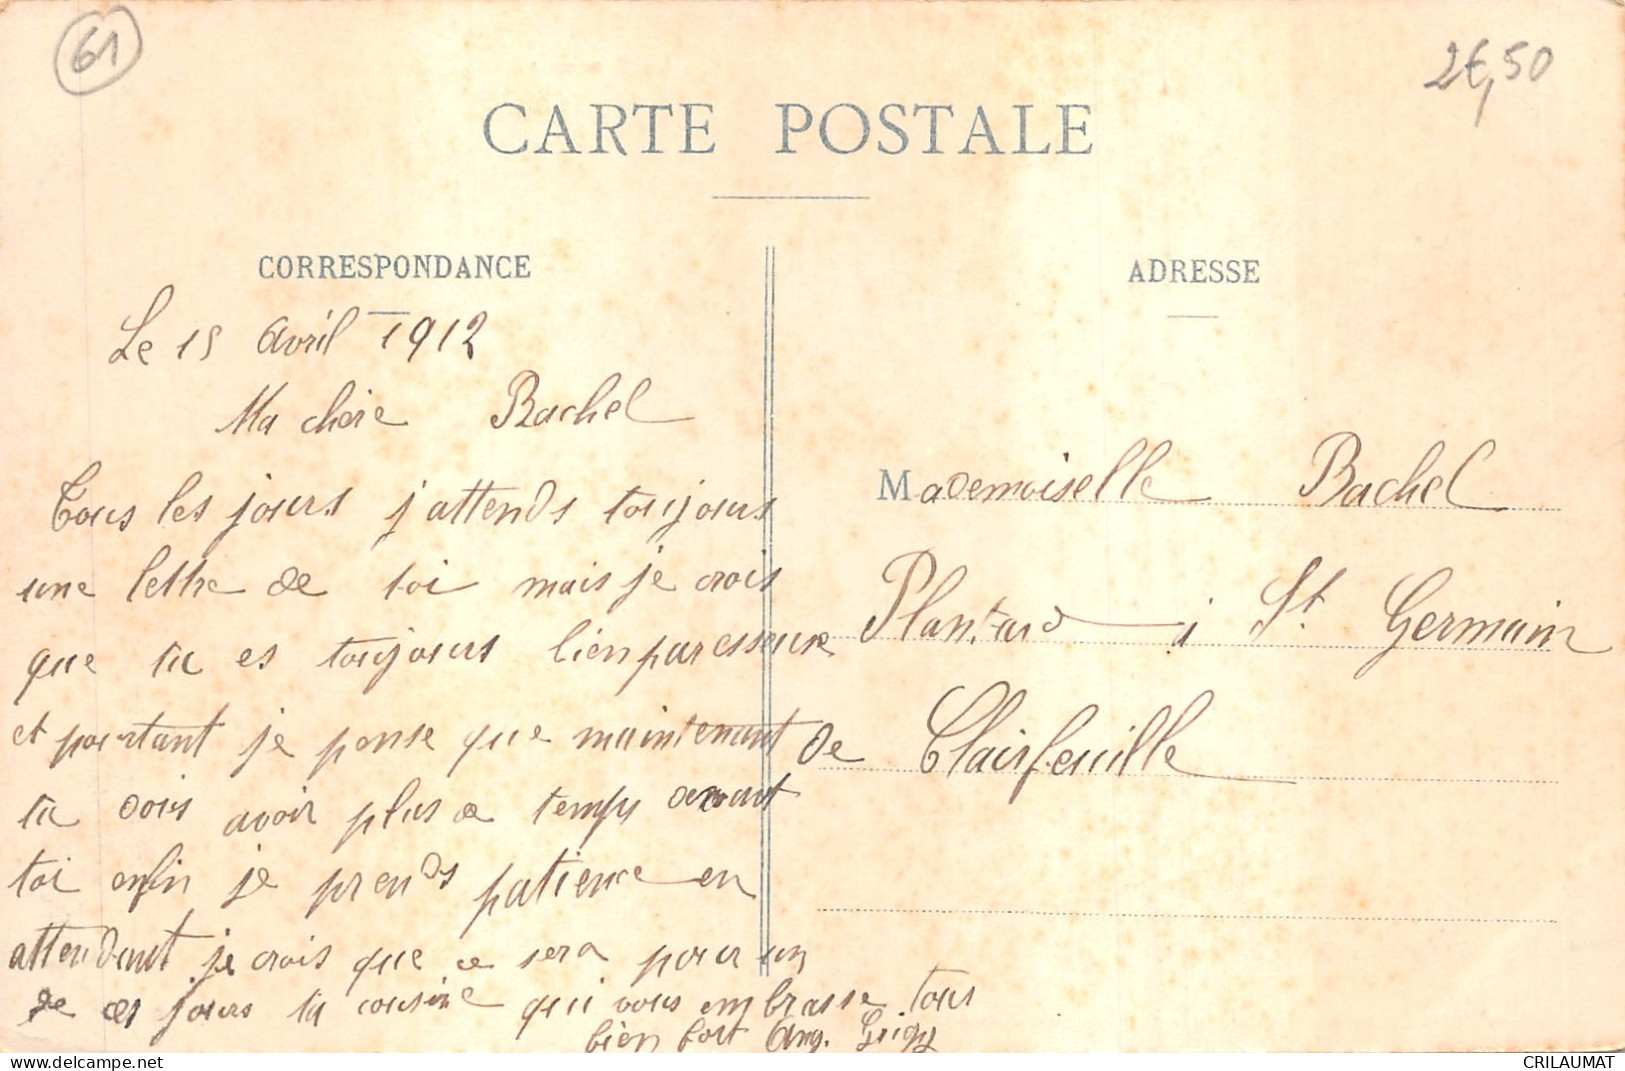 61
2€,50
CARTE POSTALE
CORRESPONDANCE
ADRESSE
Le 15 Avril 1912
Ma chère Rachel
Tous les jours j'attends toujours
une lettre de toi mais je crois
que tu es toujours bien paresseuse
et pourtant je pense que maintenant
tu dois avoir plus de temps devant
toi enfin je prends patience en
attendant je crois que ce sera pour un
de ces jours ta cousine qui vous embrasse tous
bien fort Ang.
Mademoiselle Rachel
Plantard à St Germain
de Clairfeuille
CRILAUMAT